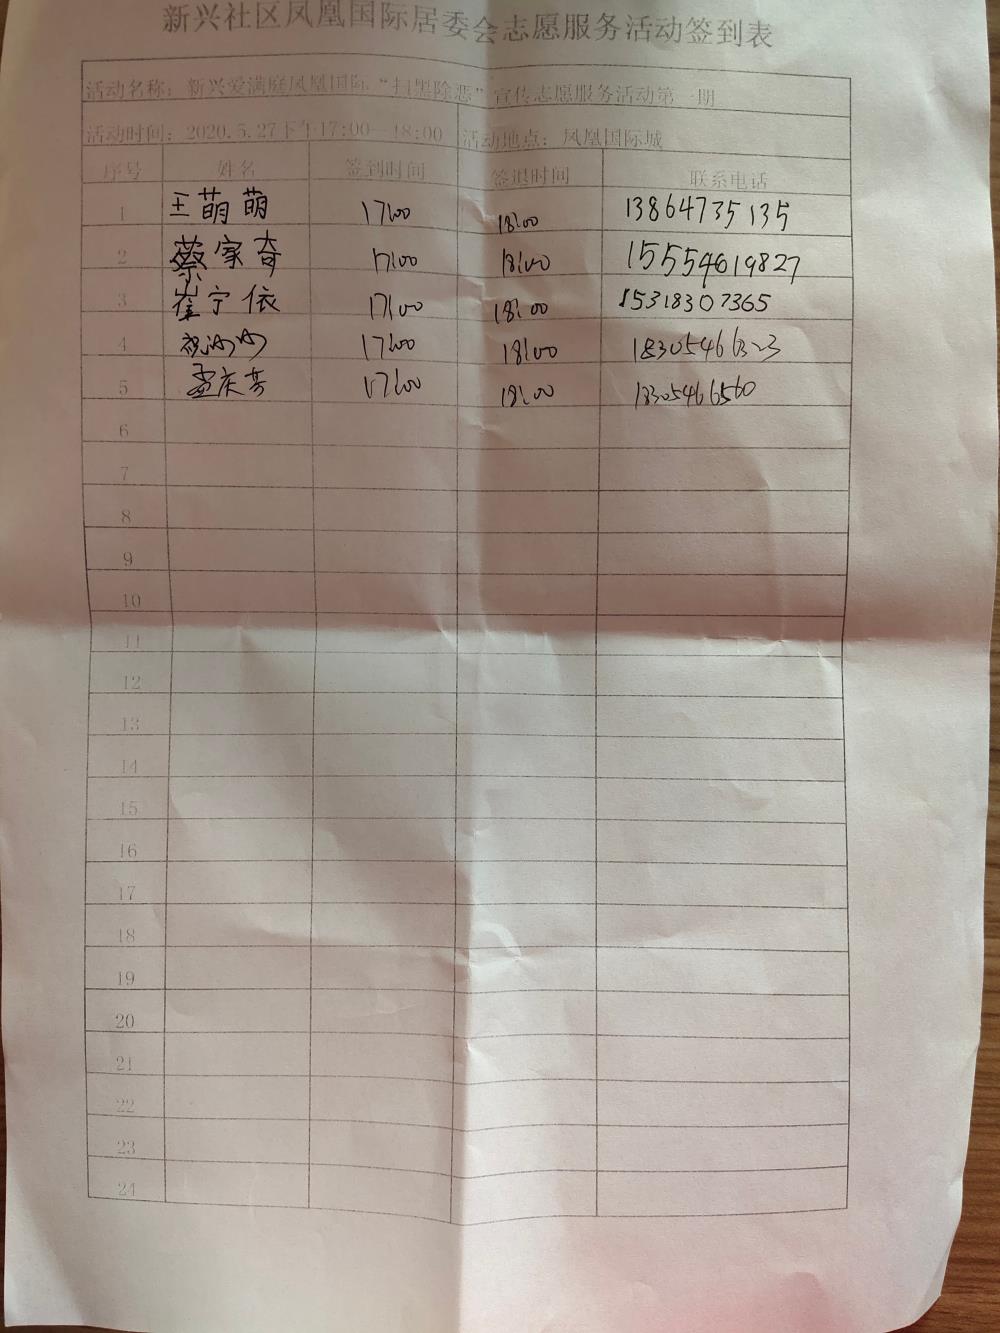 新兴社区凤凰国际居委会志愿服务活动签到表
活动名称：新兴爱满庭凤凰国际“扫黑除恶”宣传志愿服务活动第一期
活动时间：2020.5.27下午17:00—18:00 活动地点：凤凰国际城
序号 姓名 签到时间 签退时间 联系电话
1 王萌萌 17:00 18:00 13864735135
2 蔡家奇 17:00 18:00 15554619827
3 崔宁依 17:00 18:00 15318307365
4 祝沙沙 17:00 18:00 18305466323
5 孟庆芳 17:00 18:00 18305466560
6
7
8
9
10
11
12
13
14
15
16
17
18
19
20
21
22
23
24